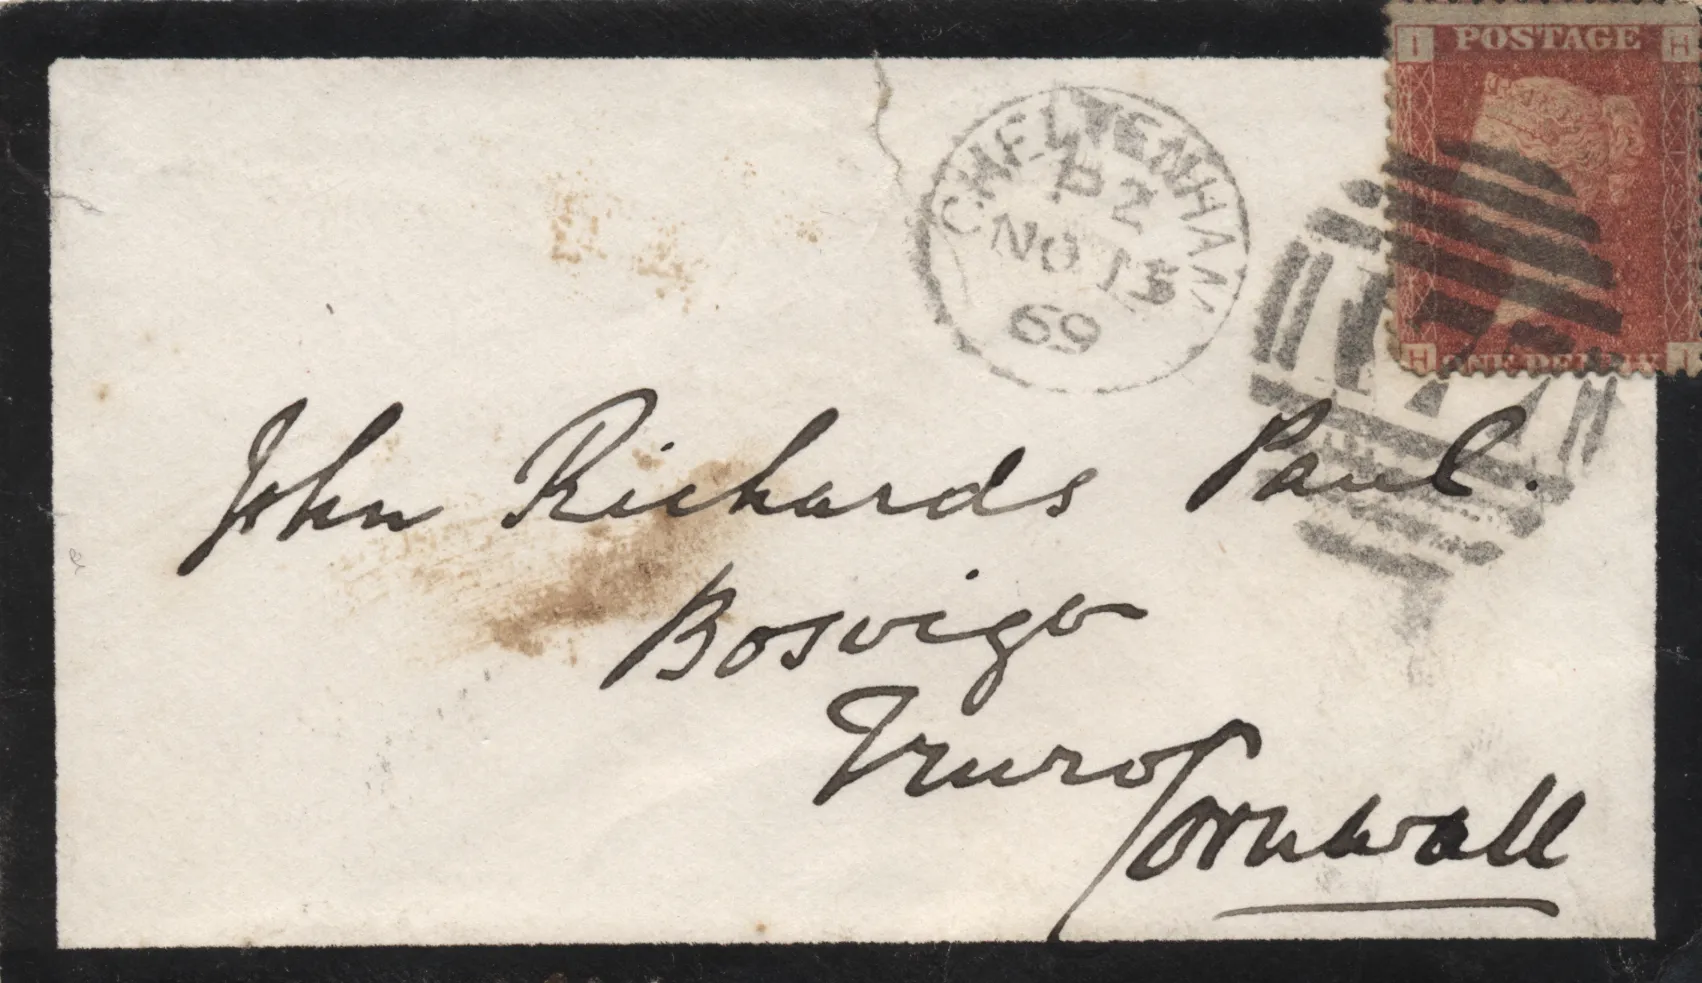 I POSTAGE H
H ONE PENNY I
CHELTENHAM
PZ
NO 13
69
John Richards Paul.
Bosvigo
Truro
Cornwall